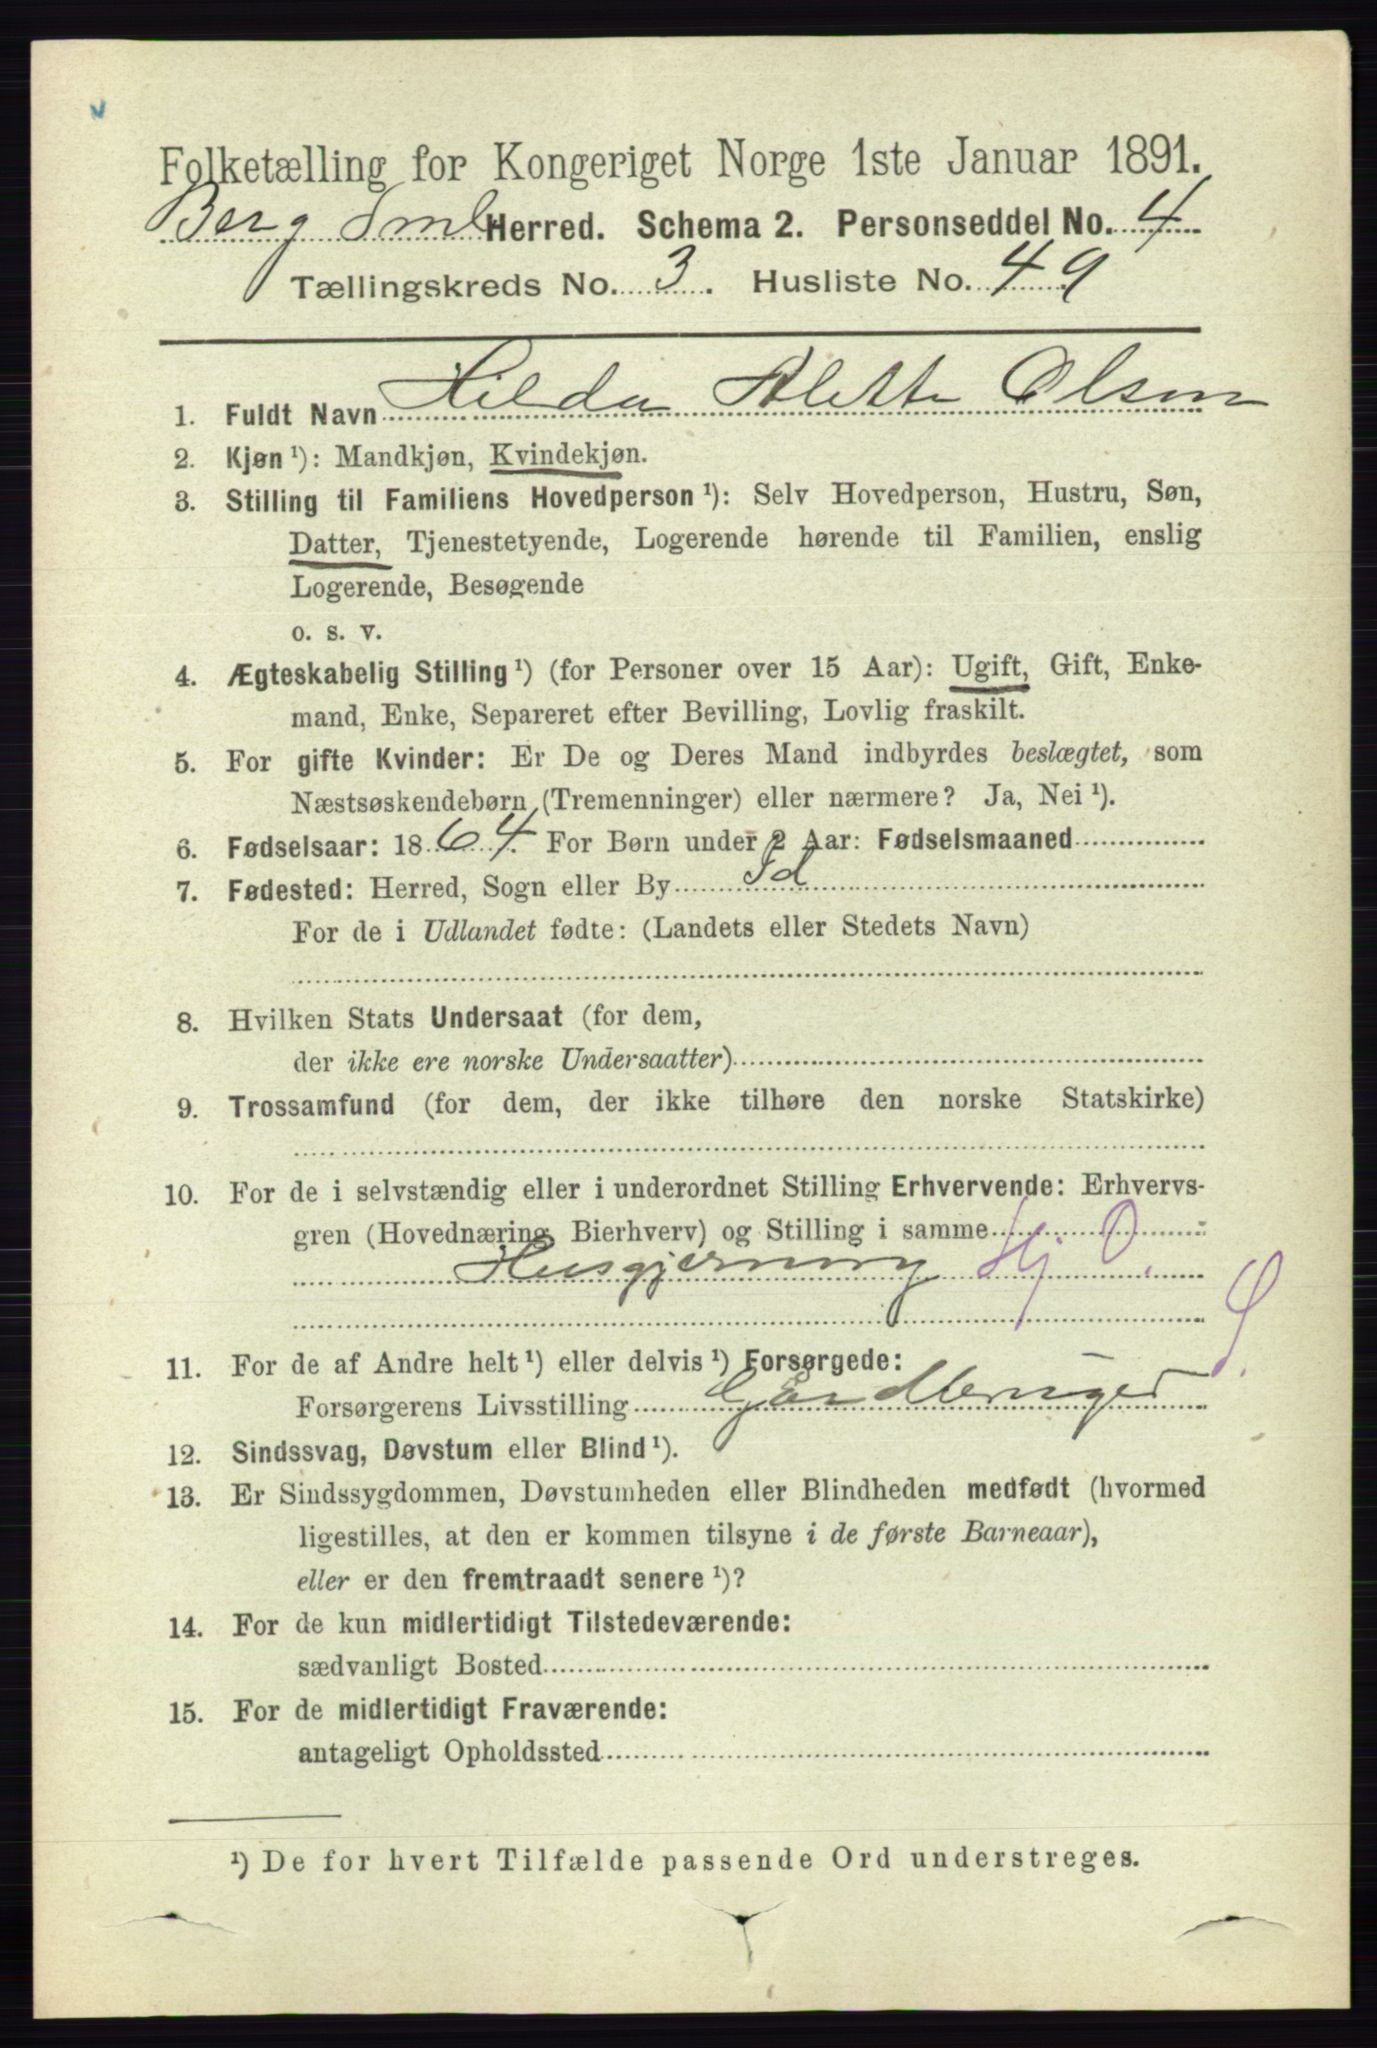 Folketælling for Kongeriget Norge 1ste Januar 1891.
Berg Sml Herred. Schema 2. Personseddel No. 4
Tællingskreds No. 3. Husliste No. 49
1. Fuldt Navn Hilda Alette Olsen
2. Kjøn ¹): Mandkjøn, Kvindekjøn.
3. Stilling til Familiens Hovedperson ¹): Selv Hovedperson, Hustru, Søn,
Datter, Tjenestetyende, Logerende hørende til Familien, enslig
Logerende, Besøgende
o. s. v.
4. Ægteskabelig Stilling ¹) (for Personer over 15 Aar): Ugift, Gift, Enke-
mand, Enke, Separeret efter Bevilling, Lovlig fraskilt.
5. For gifte Kvinder: Er De og Deres Mand indbyrdes beslægtet, som
Næstsøskendebørn (Tremenninger) eller nærmere? Ja, Nei ¹).
6. Fødselsaar: 1864. For Børn under 2 Aar: Fødselsmaaned
7. Fødested: Herred, Sogn eller By Id
For de i Udlandet fødte: (Landets eller Stedets Navn)
8. Hvilken Stats Undersaat (for dem,
der ikke ere norske Undersaatter)
9. Trossamfund (for dem, der ikke tilhøre den norske Statskirke)
10. For de i selvstændig eller i underordnet Stilling Erhvervende: Erhvervs-
gren (Hovednæring, Bierhverv) og Stilling i samme
Husgjerning Hj O.
11. For de af Andre helt ¹) eller delvis ¹) Forsørgede:
Forsørgerens Livsstilling Gardbruger
12. Sindssvag, Døvstum eller Blind ¹).
13. Er Sindssygdommen, Døvstumheden eller Blindheden medfødt (hvormed
ligestilles, at den er kommen tilsyne i de første Barneaar),
eller er den fremtraadt senere ¹)?
14. For de kun midlertidigt Tilstedeværende:
sædvanligt Bosted
15. For de midlertidigt Fraværende:
antageligt Opholdssted
¹) De for hvert Tilfælde passende Ord understreges.